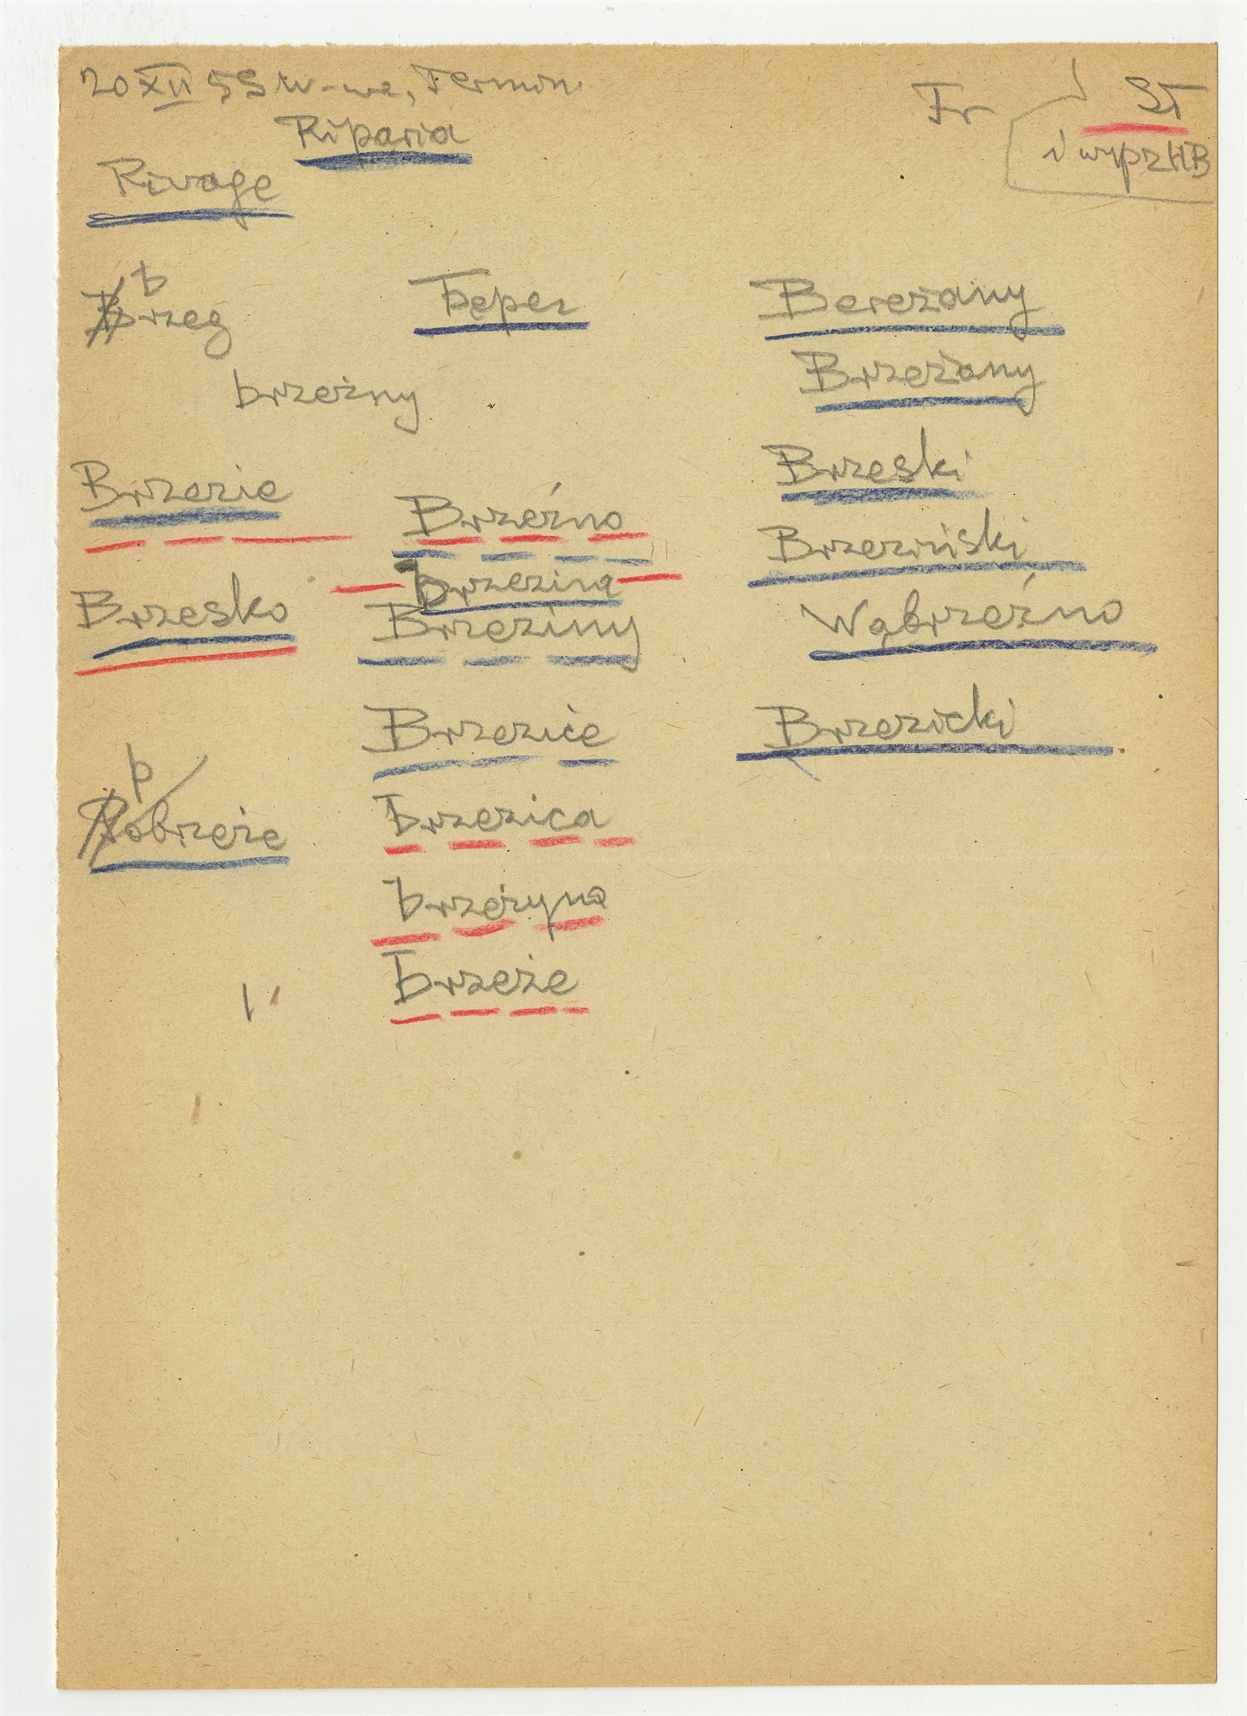 20 XII 55 W-wa, Termin.
Fr
ST
i wyprHB
Riparia
Rivage
brzeg
берег
Bereżany
Brzeżany
brzeżny
Brzezie
Brzeźno
Brzeski
brzezina
Brzeziński
Brzesko
Brzeziny
Wąbrzeźno
Brzezice
Brzezicki
pobrzeże
brzezica
brzeżyna
brzeże